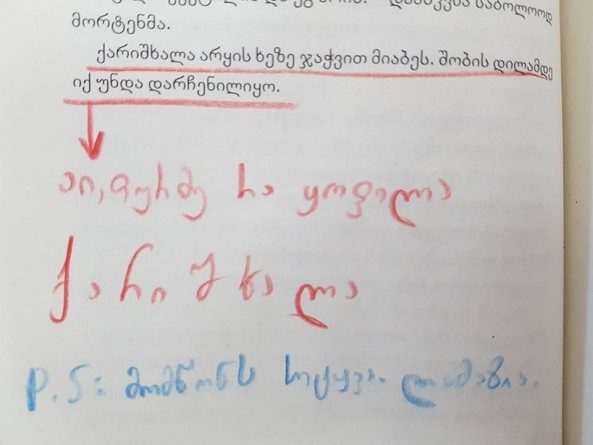 დაასკვნა საბოლოოდ
მორტენმა.
ქარიშხალა არყის ხეზე ჯაჭვით მიაბეს. შობის დილამდე
იქ უნდა დარჩენილიყო.
აი, თურმე რა ყოფილა
ქარიშხალა
P.S: მომწონს სიტყვა. ლამაზია.